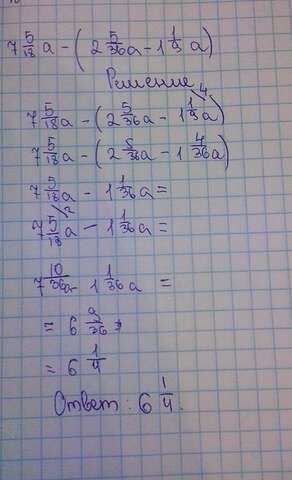 7 5/18 a - (2 5/36 a - 1 1/9 a)
Решение
4
7 5/18 a - (2 5/36 a - 1 1/9 a)
7 5/18 a - (2 5/36 a - 1 4/36 a)
7 5/18 a - 1 1/36 a =
2
7 5/18 a - 1 1/36 a =
7 10/36 a - 1 1/36 a =
= 6 9/36
= 6 1/4
Ответ: 6 1/4.